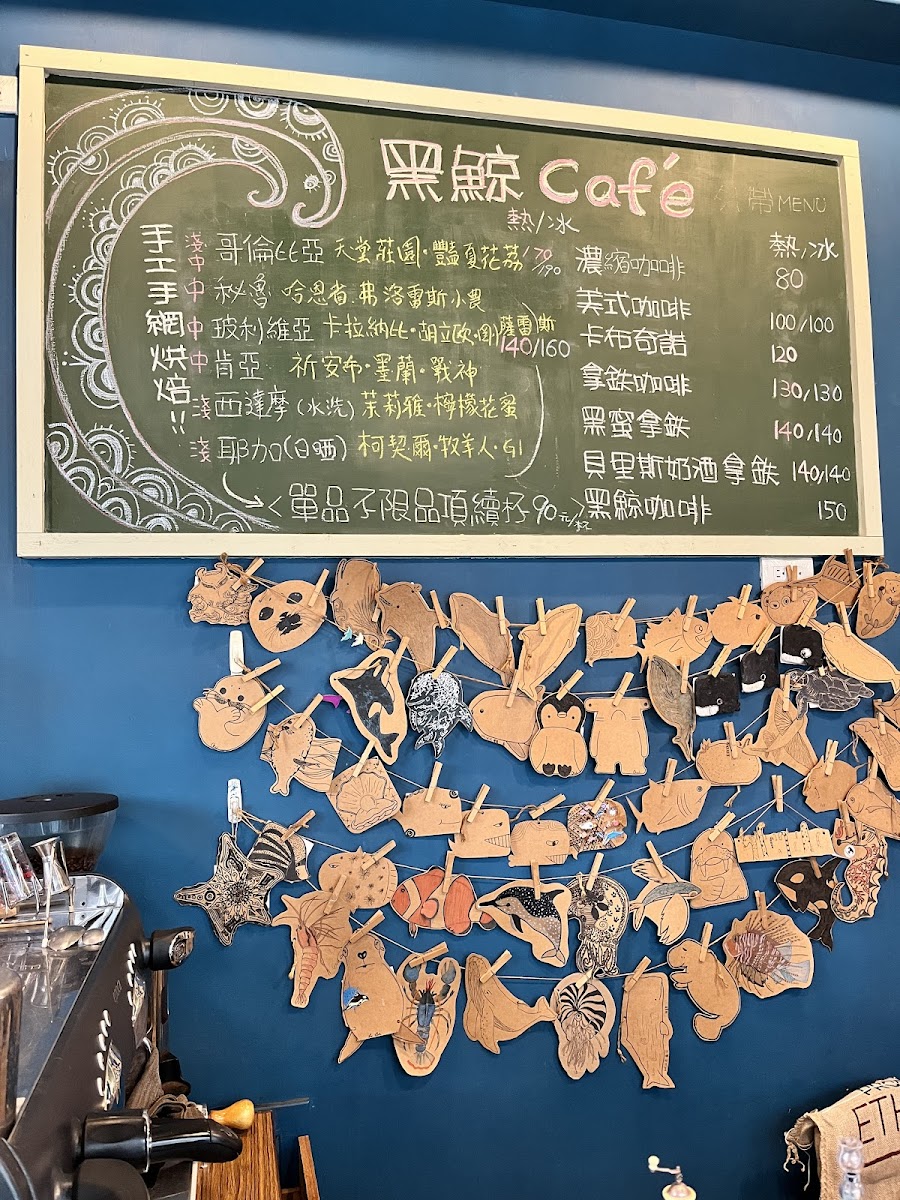 黑鯨 Café
MENU
熱/冰
手工手網烘焙!!
淺中 哥倫比亞 天堂莊園·豔夏花荔 170/190
中 秘魯 哈恩省·弗洛雷斯小農
中 玻利維亞 卡拉納比·胡立歐·薩雷斯
140/160
中 肯亞 祈安布·墨蘭·戰神
淺 西達摩(水洗) 茉莉雅·檸檬花蜜
淺 耶加(日晒) 柯契爾·牧羊人·G1
<單品不限品項續杯90元/杯>
熱/冰
濃縮咖啡 80
美式咖啡 100/100
卡布奇諾 120
拿鉄咖啡 130/130
黑蜜拿鉄 140/140
貝里斯奶酒拿鉄 140/140
黑鯨咖啡 150
ETH